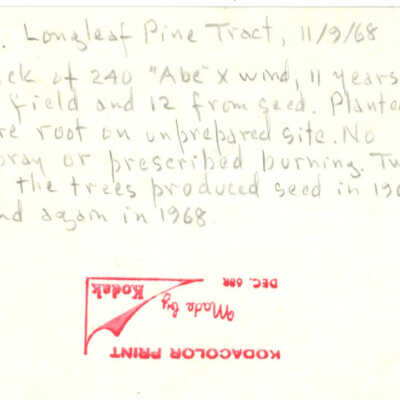 . Longleaf Pine Tract, 11/9/68
ck of 240 "Abe" X wind, 11 years
field and 12 from seed. Plante
re root on unprepared site. No
pray or prescribed burning. Tw
the trees produced seed in 19
nd again in 1968.
KODACOLOR PRINT
Made by
Kodak
DEC. 68R